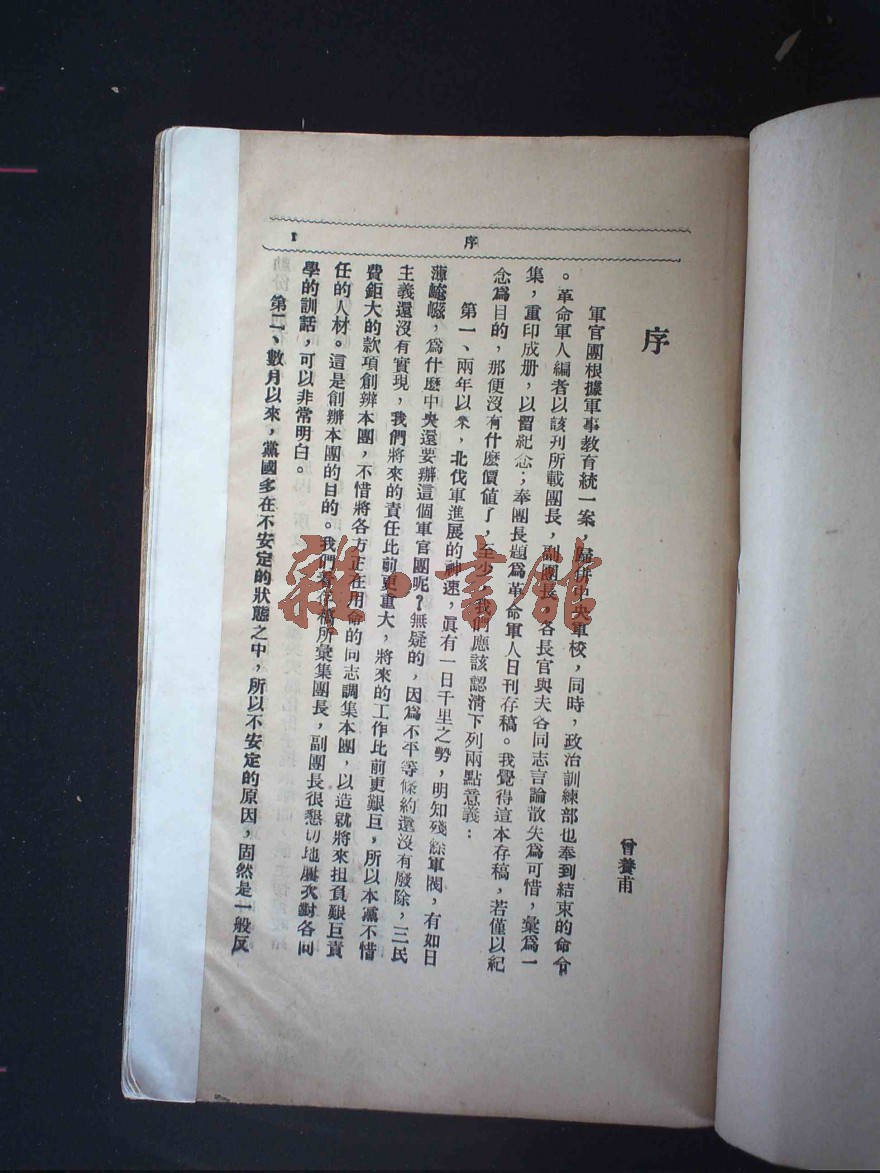 序
1
序
曾養甫
軍官團根據軍事教育統一案，歸併中央軍校，同時，政治訓練部也奉到結束的命令
。革命軍人編者以該刊所載團長，副團長，各長官與夫各同志言論散失爲可惜，彙爲一
集，重印成册，以留紀念；奉團長題爲革命軍人日刊存稿。我覺得這本存稿，若僅以紀
念爲目的，那便沒有什麽價値了，至少，我們應該認淸下列兩點意義：
第一、兩年以來，北伐軍進展的神速，眞有一日千里之勢，明知殘餘軍閥，有如日
薄崦嵫，爲什麽中央還要辦這個軍官團呢？無疑的，因爲不平等條約還沒有廢除，三民
主義還沒有實現，我們將來的責任比前更重大，將來的工作比前更艱巨，所以本黨不惜
費鉅大的款項創辦本團，不惜將各方正在用命的同志調集本團，以造就將來担負艱巨責
任的人材。這是創辦本團的目的。我們看存稿所彙集團長，副團長很懇切地屢次對各同
學的訓話，可以非常明白。
第二、數月以來，黨國多在不安定的狀態之中，所以不安定的原因，固然是一般反
雜书館